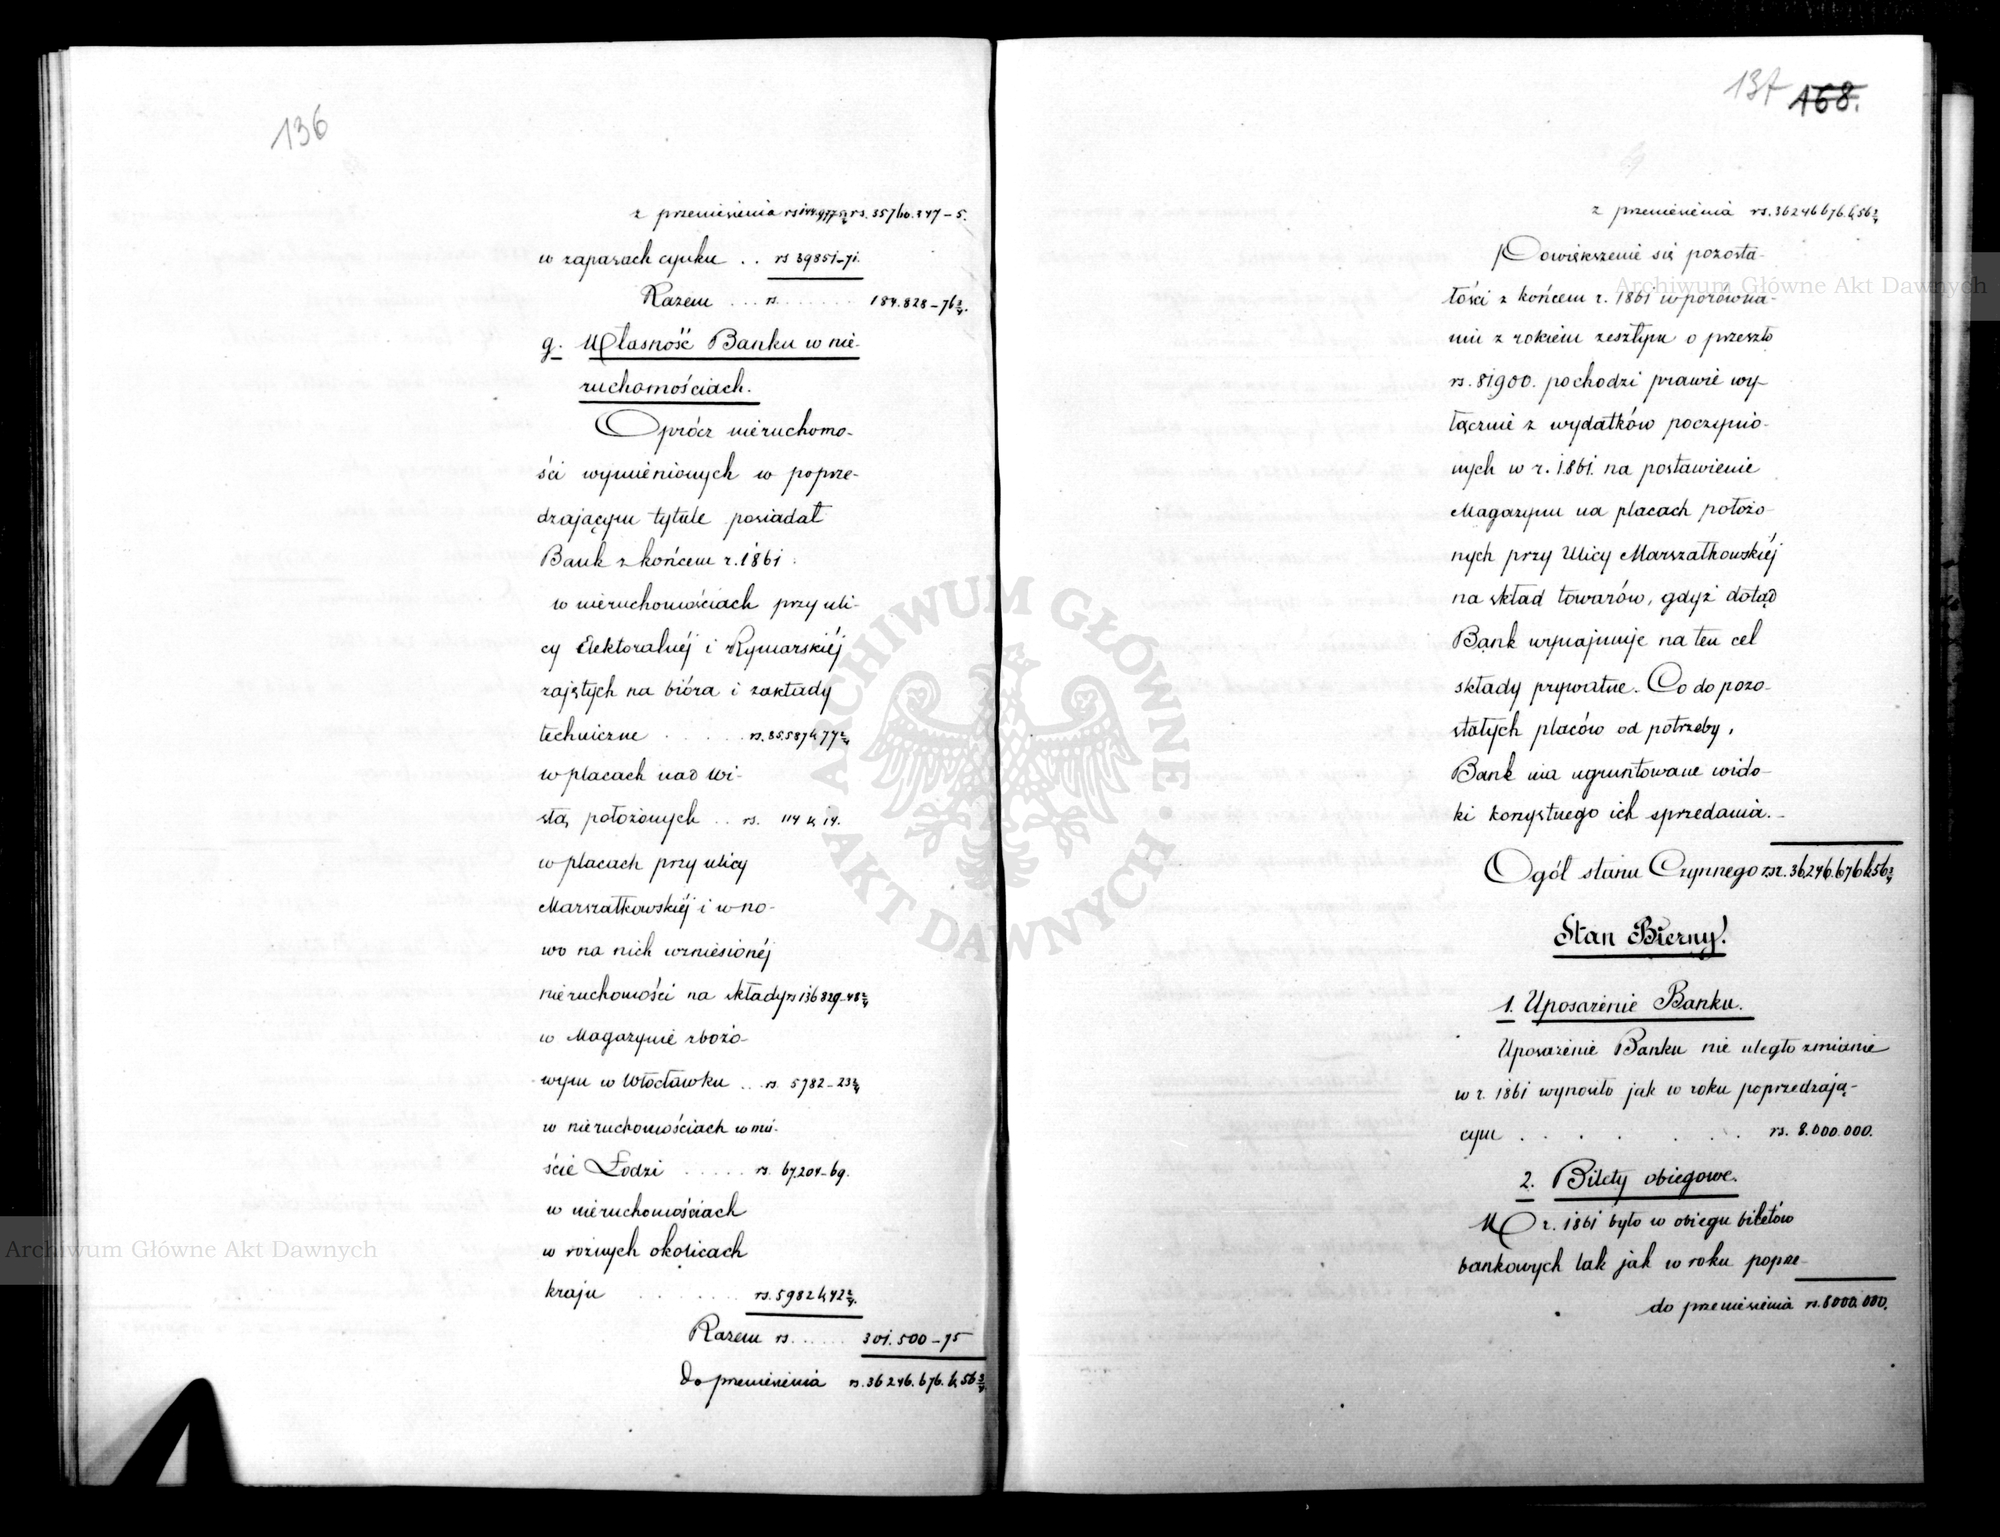 136
z przeniesienia rs 144.977 rs. 35760.347-5.
w zapasach cynku . . rs 39851-71.
Razem . . . rs. . . . . . . . 184.828-76¾.
g. Własność Banku w nie-
ruchomościach.
Oprócz nieruchomo-
ści wymienionych w poprze-
dzającym tytule posiadał
Bank z końcem r. 1861 :
w nieruchomościach przy uli-
cy Elektoralnéj i Rymarskiéj
zajętych na bióra i zakłady
techniczne . . . . . . rs. 35.587 k 77
w placach nad Wi-
słą położonych . . rs. 114 k 14.
w placach przy ulicy
Marszałkowskiéj i w no-
wo na nich wzniesionéj
nieruchomości na składy rs 136829-48
w Magazynie zbożo-
wym w Włocławku . . rs. 5782-23
w nieruchomościach w mie-
ście Łodzi . . . . . rs. 67.204-69.
w nieruchomościach
w rożnych okolicach
kraju . . . . . . . rs. 5982 k 42
Razem rs. . . . . . 301.500-75
Do przeniesienia rs. 36246.676. k 56¾.
137 168.
z przeniesienia rs. 36246676. k 56¾
Powiększenie się pozosta-
łości z końcem r. 1861 w porówna-
niu z rokiem zeszłym o przeszło
rs. 81900. pochodzi prawie wy-
łącznie z wydatków poczynio-
nych w r. 1861. na postawienie
Magazynu na placach położo-
nych przy Ulicy Marszałkowskiéj
na skład towarów, gdyż dotąd
Bank wynajmuje na ten cel
składy prywatne. Co do pozo-
stałych placów od potrzeby,
Bank ma ugruntowane wido-
ki korzystnego ich sprzedania.
Ogół stanu Czynnego rsr. 36246.676 k 56¾
Stan Bierny.
1. Uposażenie Banku.
Uposażenie Banku nie uległo zmianie
w r. 1861 wynosiło jak w roku poprzedzają-
cym . . . . . . . rs. 8.000.000.
2. Bilety obiegowe.
W r. 1861 było w obiegu biletów
bankowych tak jak w roku poprze-
do przeniesienia rs. 8000.000.
ARCHIWUM GŁÓWNE AKT DAWNYCH
Archiwum Główne Akt Dawnych
Archiwum Główne Akt Dawnych